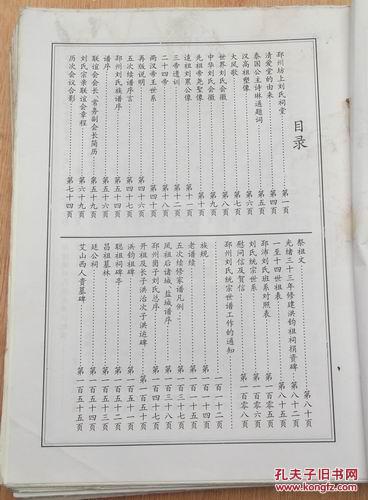 目录
邳州坊上刘氏祠堂……第一页
清爱堂的由来……第四页
泰国公主诗琳通题词……第五页
汉高祖塑像……第六页
大风歌……第七页
世界刘氏会徽……第八页
中华刘氏会徽……第九页
先祖帝尧塑像……第十页
远祖刘累公像……第十一页
三帝遗训……第十二页
二十四帝……
两汉帝王世系……第四十页
再版说明……第四十六页
五次续谱序言……
邳州刘氏族谱序……第五十四页
谱序……
联谊会会长、常务副会长简历……第五十九页
刘氏宗亲联谊会章程……第六十九页
历次会议合影……第七十四页
祭祖文……第八十页
光绪三十三年修建洪钧祖祠捐资碑……第八十二页
一至十四世祖表……第八十五页
邳沛刘氏班系对照表……
刘氏统宗世系……第一百零六页
慰问信及贺信……第一百零八页
邳州刘氏统宗世谱工作的通知
……一百一十二页
族规……第一百一十四页
老谱续……第一百一十七页
五次续修家谱凡例……第一百三十七页
凤祖后诸城、盐城谱序……第一百三十八页
邳州岗子刘氏总序……
开祖及长子洪治次子洪运碑……第一百五十页
洪钧祖碑……第一百五十一页
聪祖祠碑亭……第一百五十二页
昌祖墓林……第一百五十三页
廷公祠……第一百五十四页
艾山西人贡墓碑……第一百五十五页
孔夫子旧书网